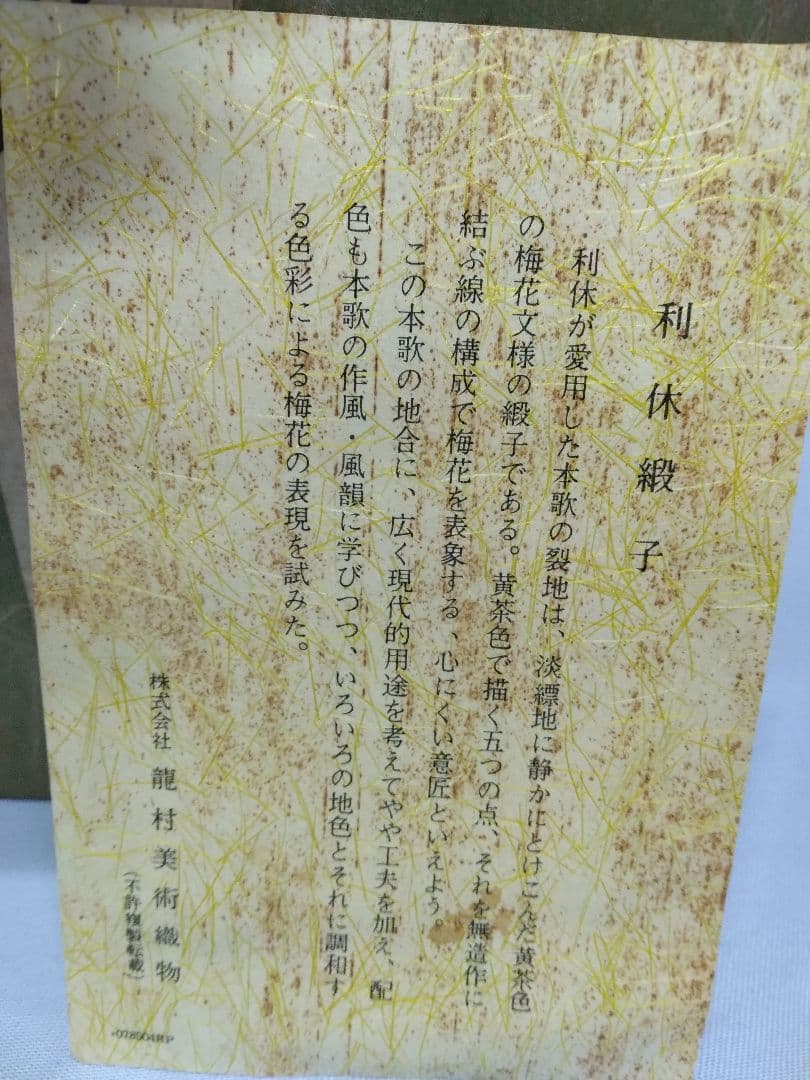 利休緞子
利休が愛用した本歌の裂地は、淡縹地に静かにとけこんだ黄茶色
の梅花文様の緞子である。黄茶色で描く五つの点、それを無造作に
結ぶ線の構成で梅花を表象する、心にくい意匠といえよう。
この本歌の地合に、広く現代的用途を考えてやや工夫を加え、配
色も本歌の作風・風韻に学びつつ、いろいろの地色とそれに調和す
る色彩による梅花の表現を試みた。
株式会社 龍村美術織物
(不許複製転載)